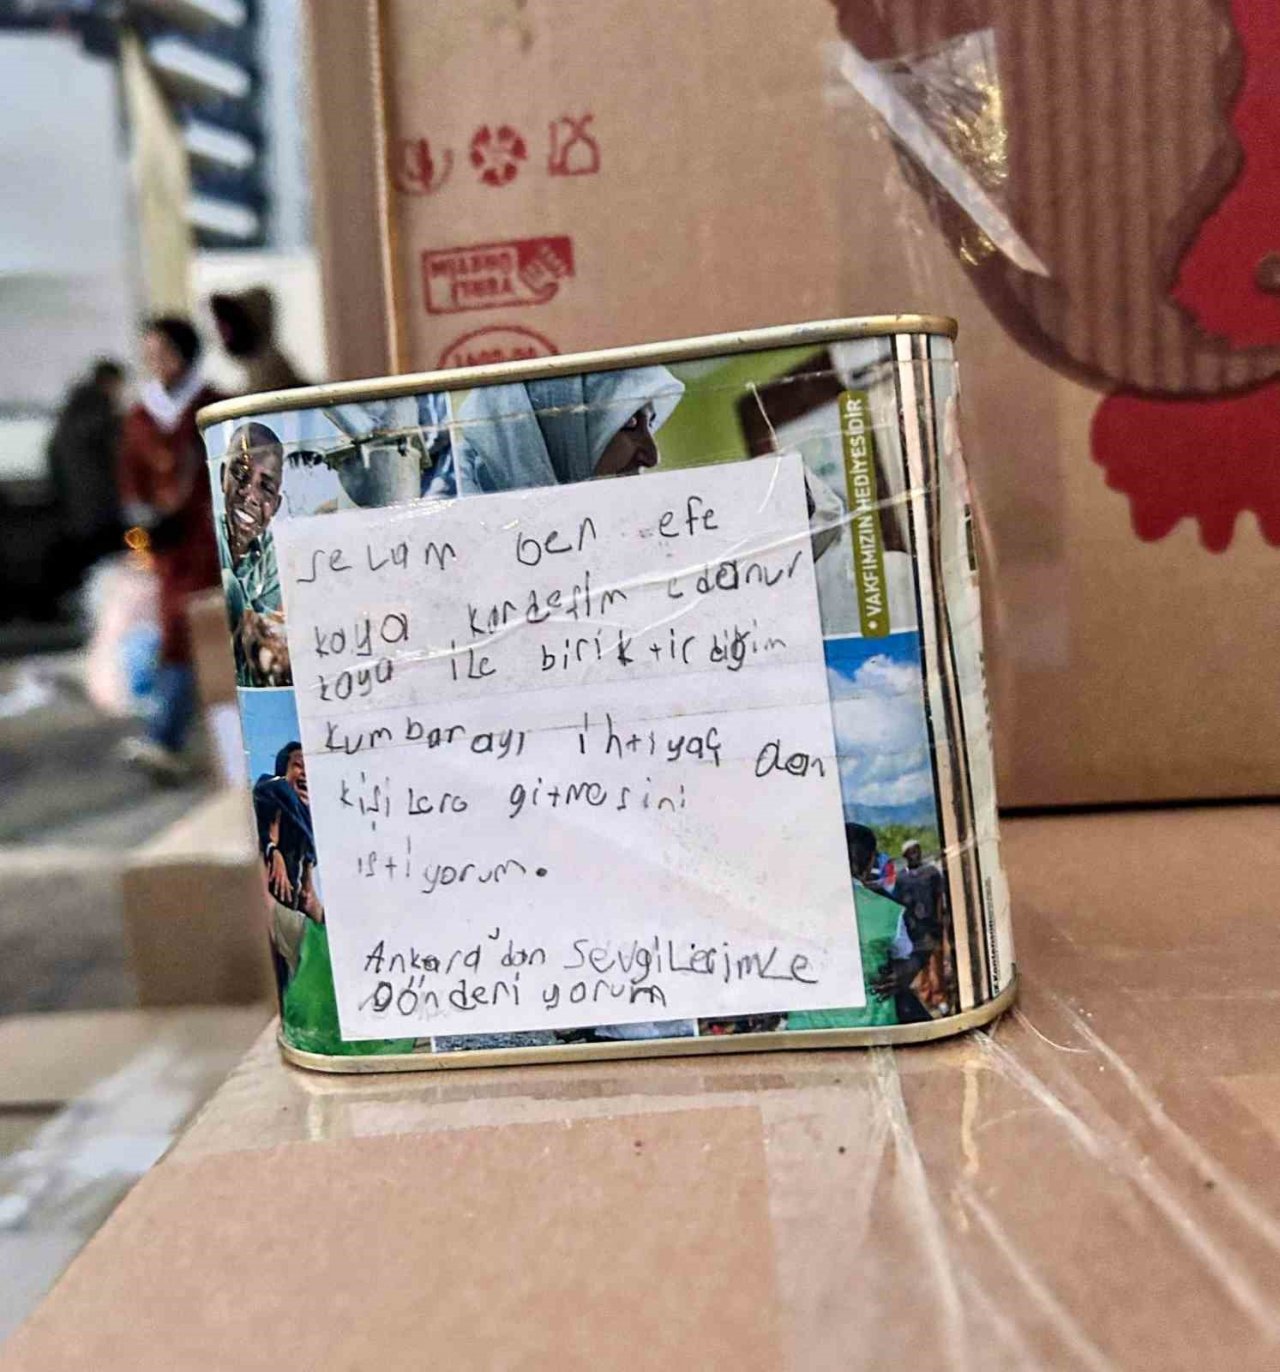 • VAKFIMIZIN HEDİYESİDİR
selam ben efe
kaya kardeşim edanur
kaya ile biriktirdiğim
kumbarayı ihtiyaç dan
kişilere gitmesini
istiyorum.
Ankara'dan sevgilerimle
Gönderiyorum